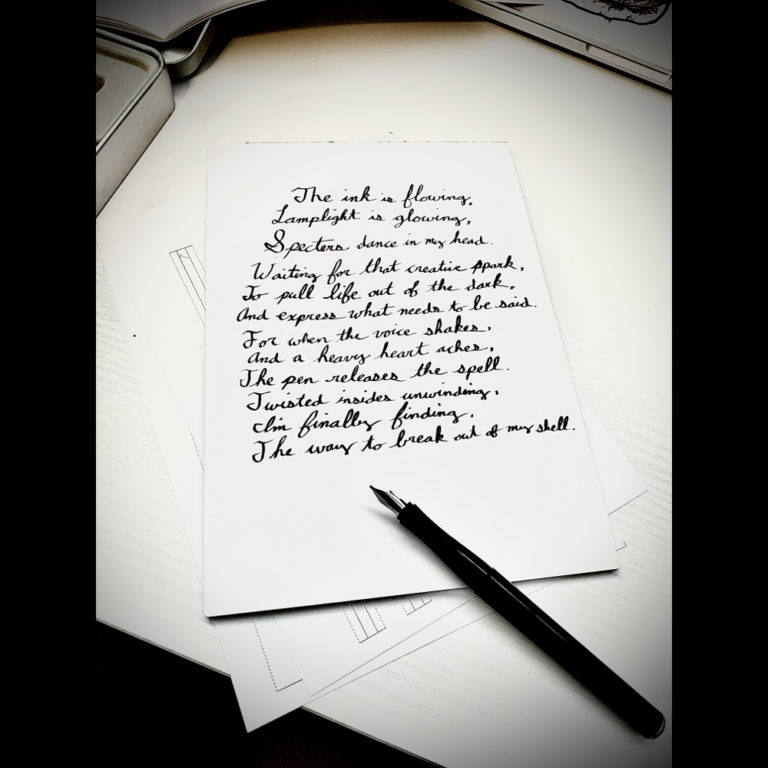 The ink is flowing,
Lamplight is glowing,
Specters dance in my head.
Waiting for that creative spark,
To pull life out of the dark,
And express what needs to be said.
For when the voice shakes,
And a heavy heart aches,
The pen releases the spell.
Twisted insides unwinding,
I'm finally finding,
The way to break out of my shell.